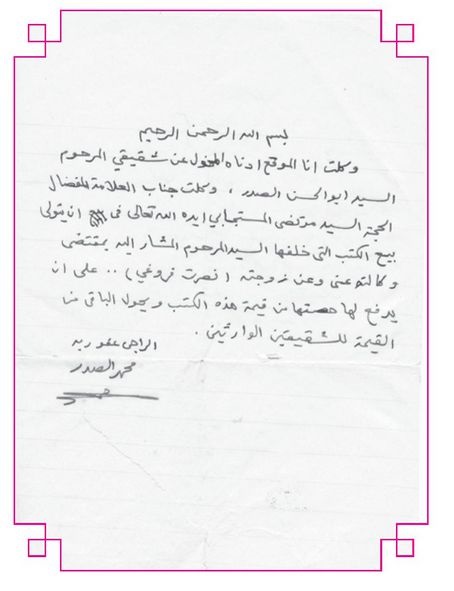 بسم الله الرحمن الرحيم
وكلت انا الموقع ادناه المخول عن شقيقي المرحوم
السيد ابو الحسن الصدر ، وكلت جناب العلامة المفضال
الحجة السيد مرتضى المستجابي ايده الله تعالى في ان يتولى
بيع الكتب التي خلفها السيد المرحوم المشار اليه بمقتضى
وكالته عني وعن زوجته (نصرت فروغي) .. على ان
يدفع لها حصتها من قيمة هذه الكتب ويحول الباقي من
القيمة للشقيقين الوارثين .
الراجي عفو ربه
محمد الصدر